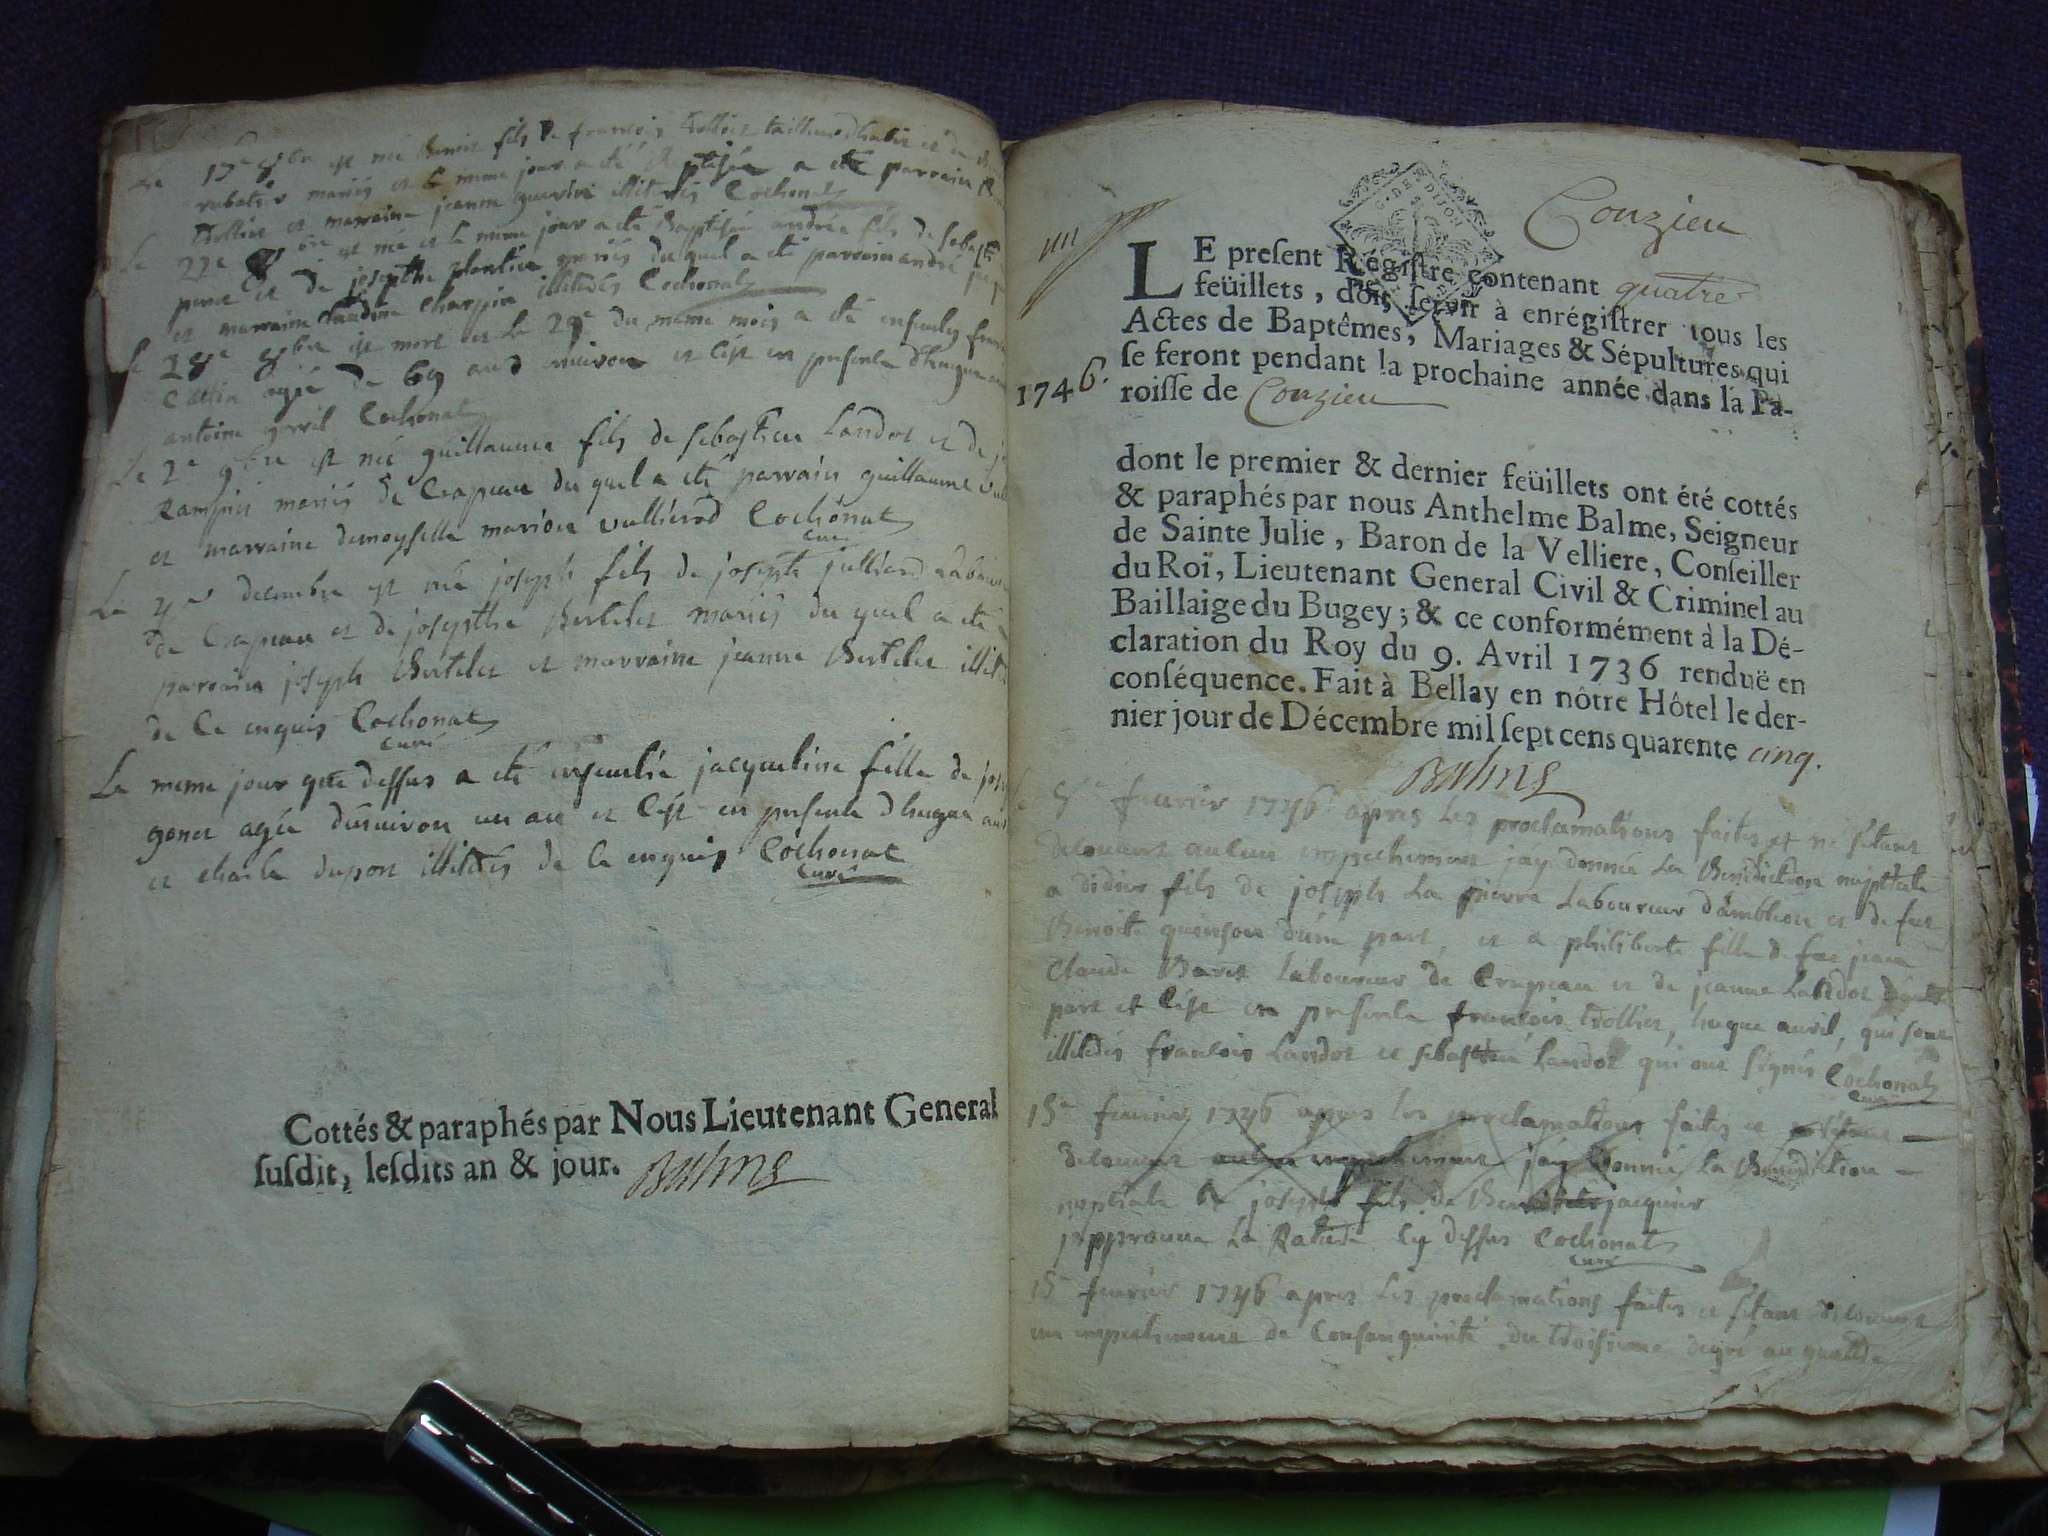 Le 17e 8bre est né Benoit fils de francois trollier tailleur dhabit et de
rubatier mariés et le meme jour a été a été parrain
trollier et marraine jeanne illiterés Cochonat
Le 22e 8bre est né et le meme jour a été Baptisé andrée fils de sebastien
et de josephte plantin mariés du quel a été parrain andré
et marraine Claudine Charpin illiterés Cochonat
Le 28e 8bre est mort et le 29e du meme mois a été ensevely
agé de 69 ans environ et c'est en presence d'hugue
antoine Cochonat
Le 2e 9bre est né guillaume fils de sebastien Landot et de
Rampin mariés de Crapeau du quel a été parrain guillaume
et marraine demoyselle marion vullierod Cochonat
curé
Le decembre est né joseph fils de joseph julliard
de Crapeau et de josephte Bertelet mariés du quel a été
parrain joseph Bertelet et marraine jeanne Bertelet
de ce enquis Cochonat
curé
Le meme jour que dessus a été ensevelie jacqueline fille de
gonet agée denviron un an et c'est en presence d'hugue
et charle dupont illiterés de ce enquis Cochonat
curé
Cottés & paraphés par Nous Lieutenant General
susdit, lesdits an & jour. Balme
G. DE DIJON
Conzieu
LE present Régistre contenant quatre
feüillets, doit servir à enrégistrer tous les
Actes de Baptêmes, Mariages & Sépultures qui
se feront pendant la prochaine année dans la Pa-
1746.
roisse de Conzieu
dont le premier & dernier feüillets ont été cottés
& paraphés par nous Anthelme Balme, Seigneur
de Sainte Julie, Baron de la Velliere, Conseiller
du Roï, Lieutenant General Civil & Criminel au
Baillaige du Bugey; & ce conformément à la Dé-
claration du Roy du 9. Avril 1736 renduë en
conséquence. Fait à Bellay en nôtre Hôtel le der-
nier jour de Décembre mil sept cens quarente cinq.
Balme
fevrier 1746 apres les proclamations faites et ne s'étant
decouvert aucun empechement jay donnée la Benediction nuptiale
a didier fils de joseph La pierre Laboureur d'ambleon et de feue
Benoite quinson d'une part, et a philiberte fille de feu jean
Claude Laboureur de Crapeau et de jeanne Landot d'autre
part et c'est en presence francois trollier, hugue avril, qui sont
illiterés francois Landot et sebastien Landot qui ont signés Cochonat
curé
15e fevrier 1746 apres les proclamations faites et
decouvert aucun empechement jay donnée la Benediction
nuptiale a joseph fils de jacquier
japprouve la Rature cy dessus Cochonat
curé
15 fevrier 1746 apres les proclamations faites et s'étant decouvert
un empechement de Consanguinité du troisieme degré au quatrie